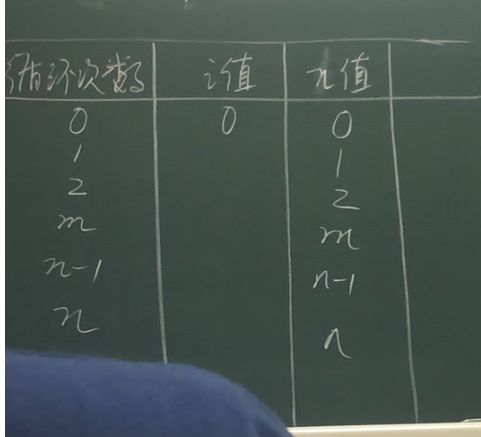 循环次数 i值 n值
0 0 0
1 1
2 2
m m
n-1 n-1
n n